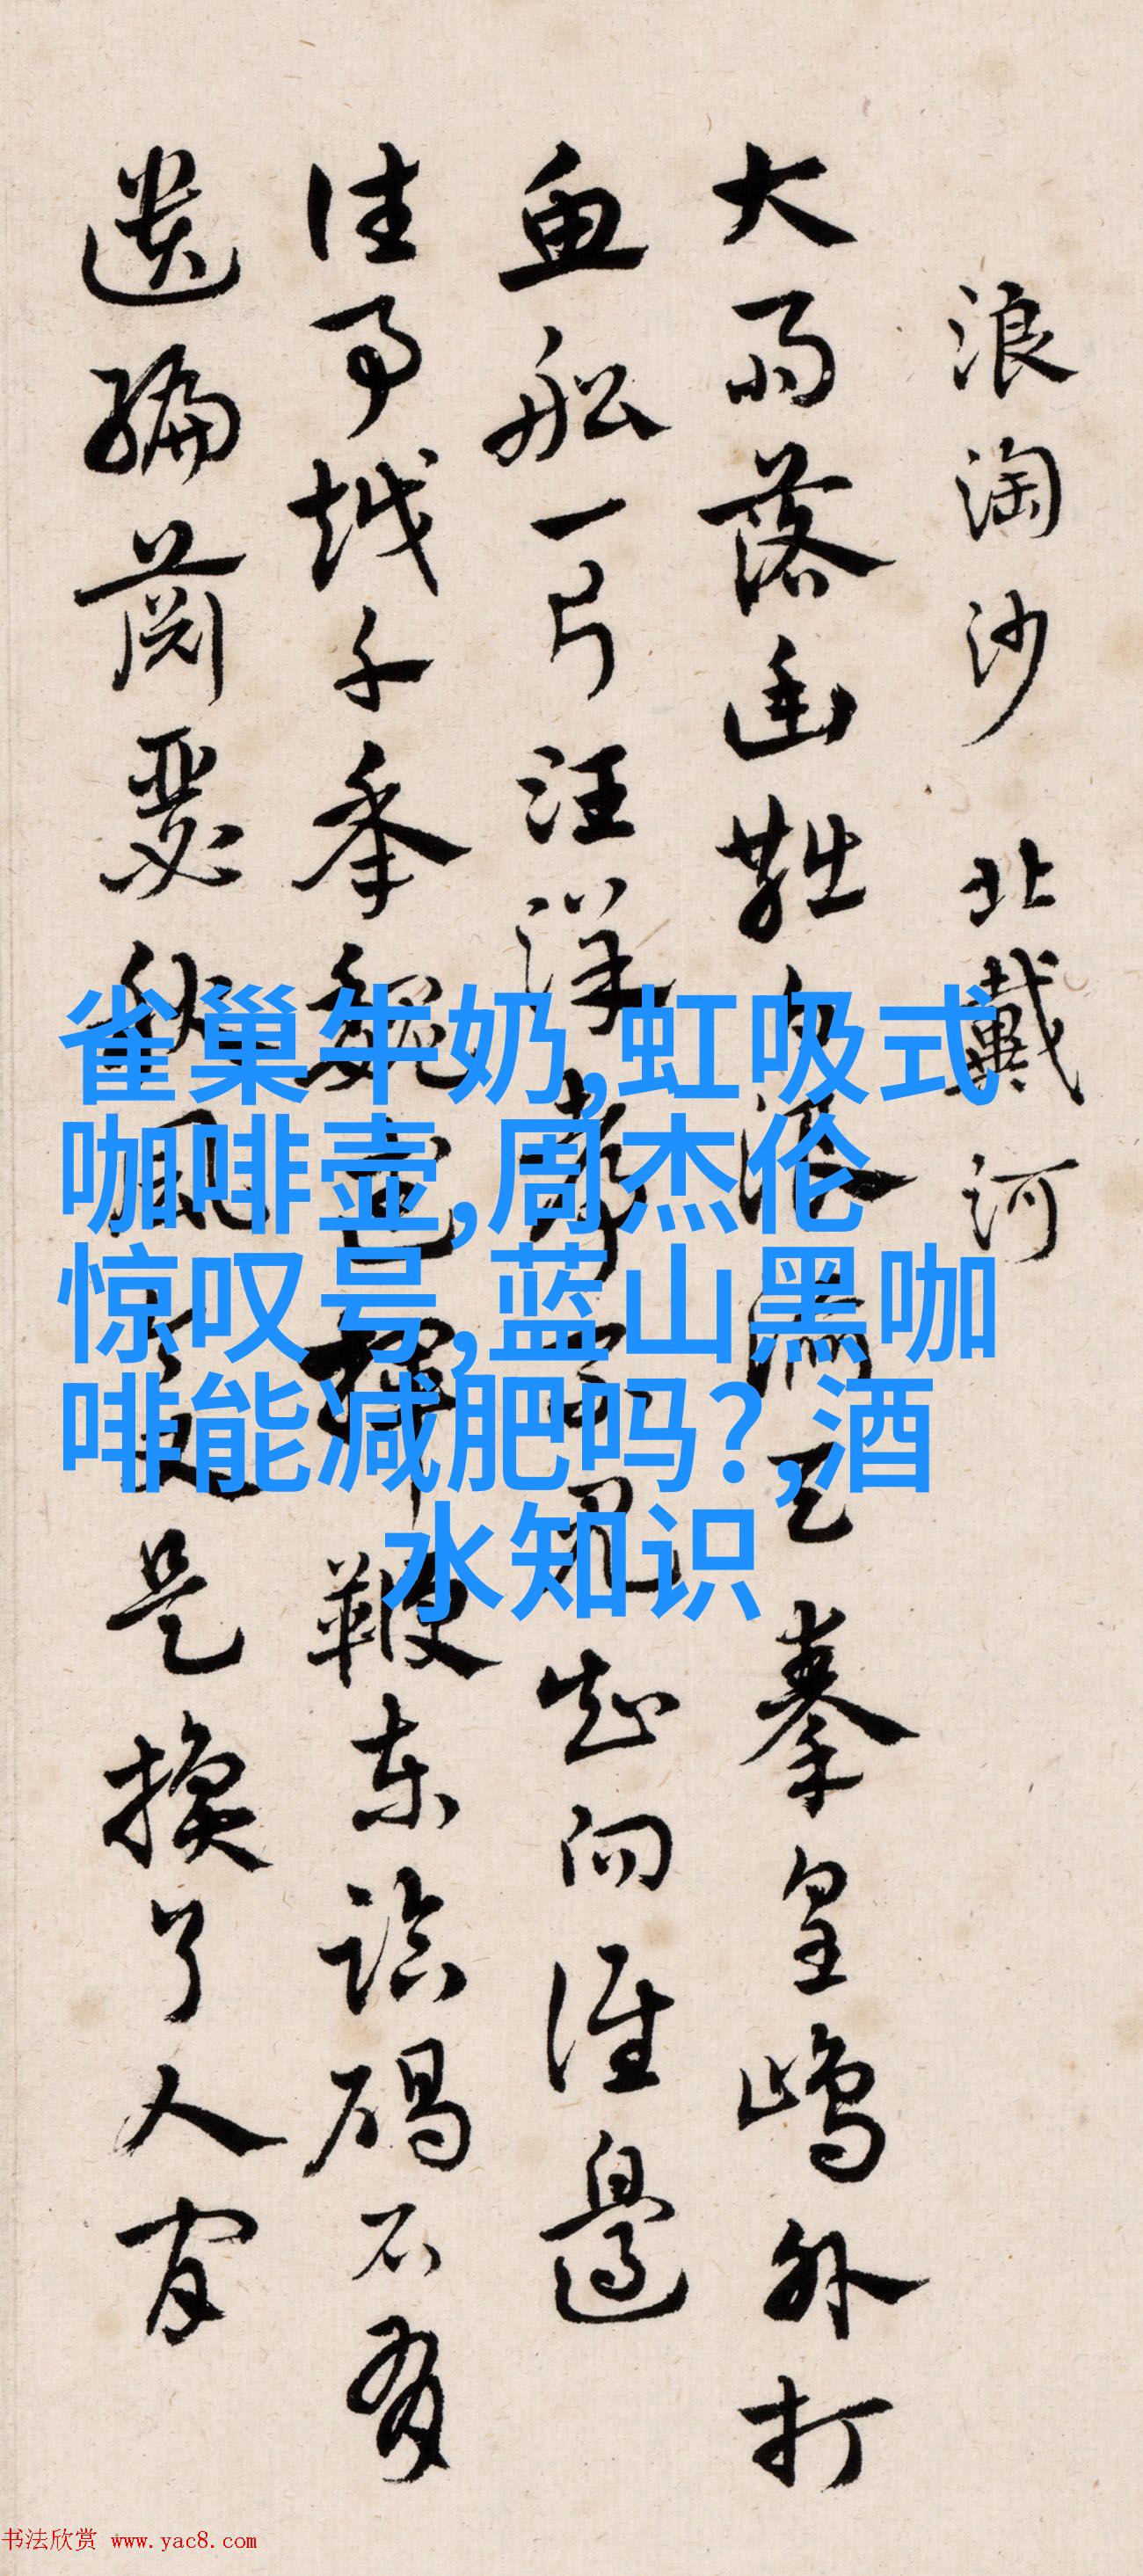 浪淘沙 北戴河
大雨落幽燕白浪滔天秦皇嶋外打
魚船一片汪洋都不見知向誰邊
往事越千年魏武揮鞭東臨碣石有
遺編蕭瑟秋風今又是換了人間
雀巢牛奶,虹吸式
咖啡壶,周杰伦
惊叹号,蓝山黑咖
啡能减肥吗?,酒
水知识
书法欣赏 www.yac8.com